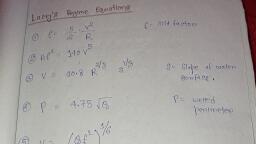 Lacey's Regime Equations
① f = 5/2 · V²/R
f - silt factor
② Af² = 140 V⁵
③ V = 10.8 R^2/3 S^1/3
S = Slope of water surface.
④ P = 4.75 √Q
P = wetted perimeter
V = (Qf²/ )^1/6